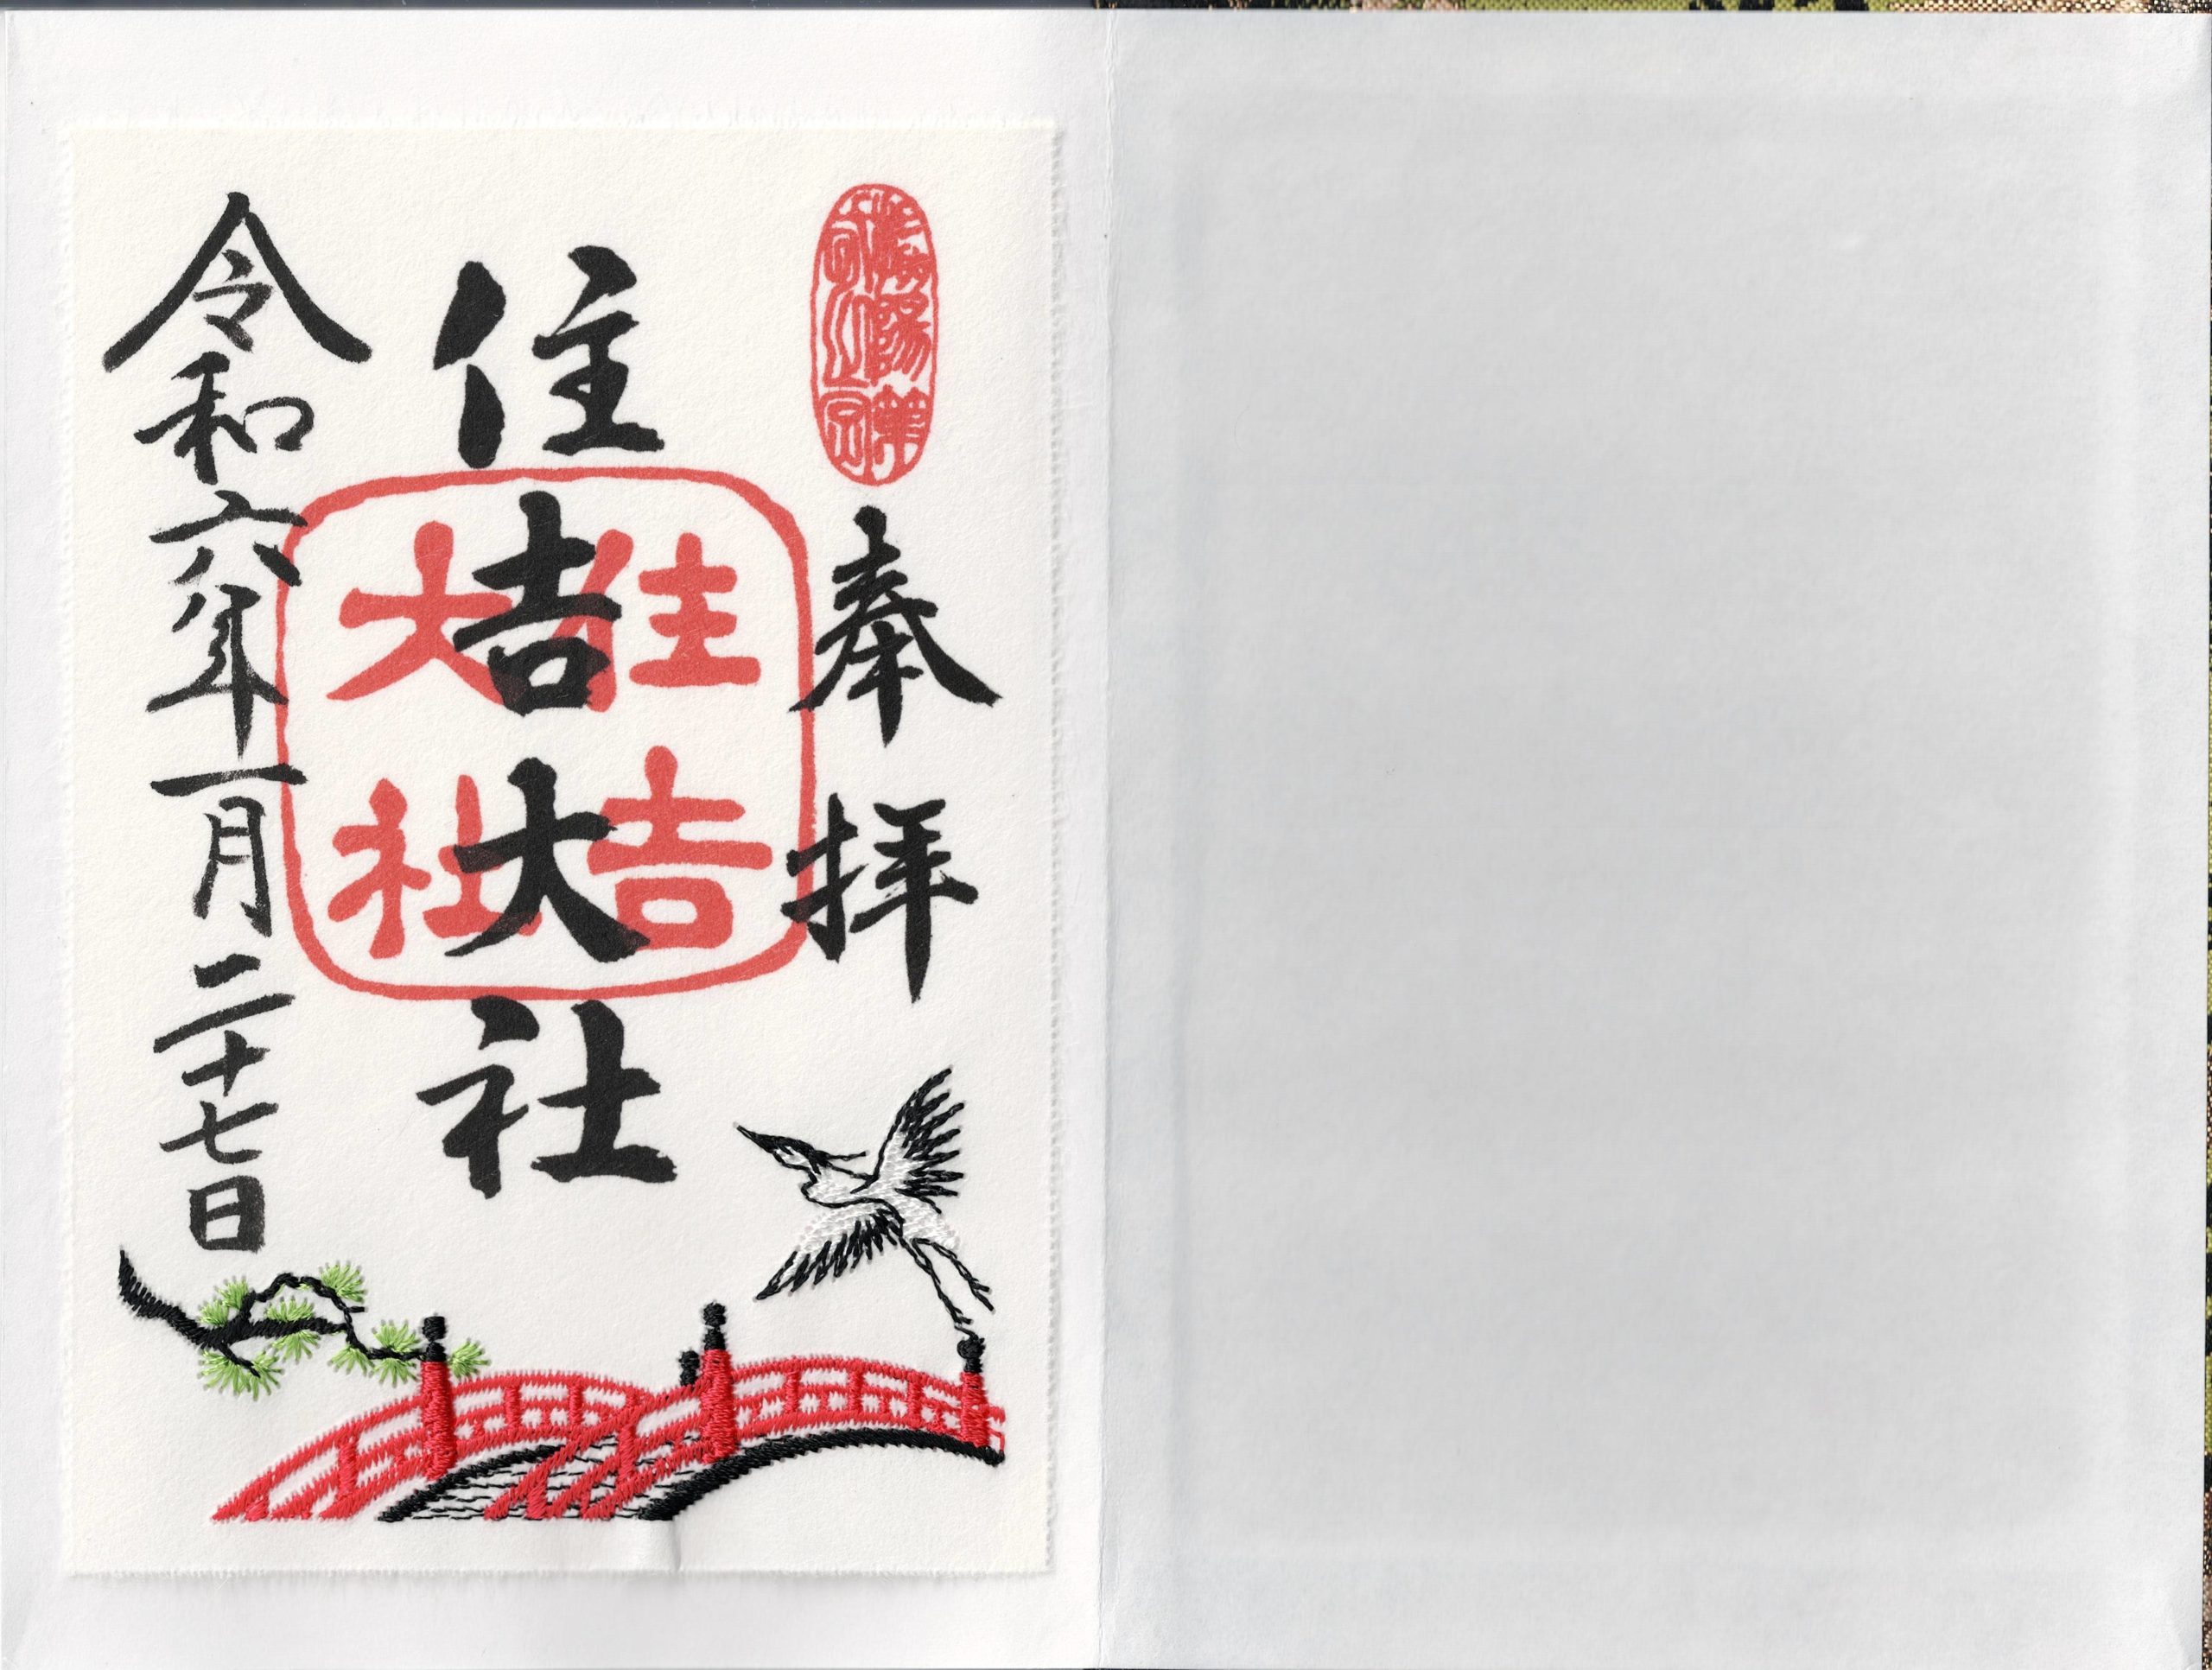 奉拝
住吉大社
住吉大社
令和六年一月二十七日